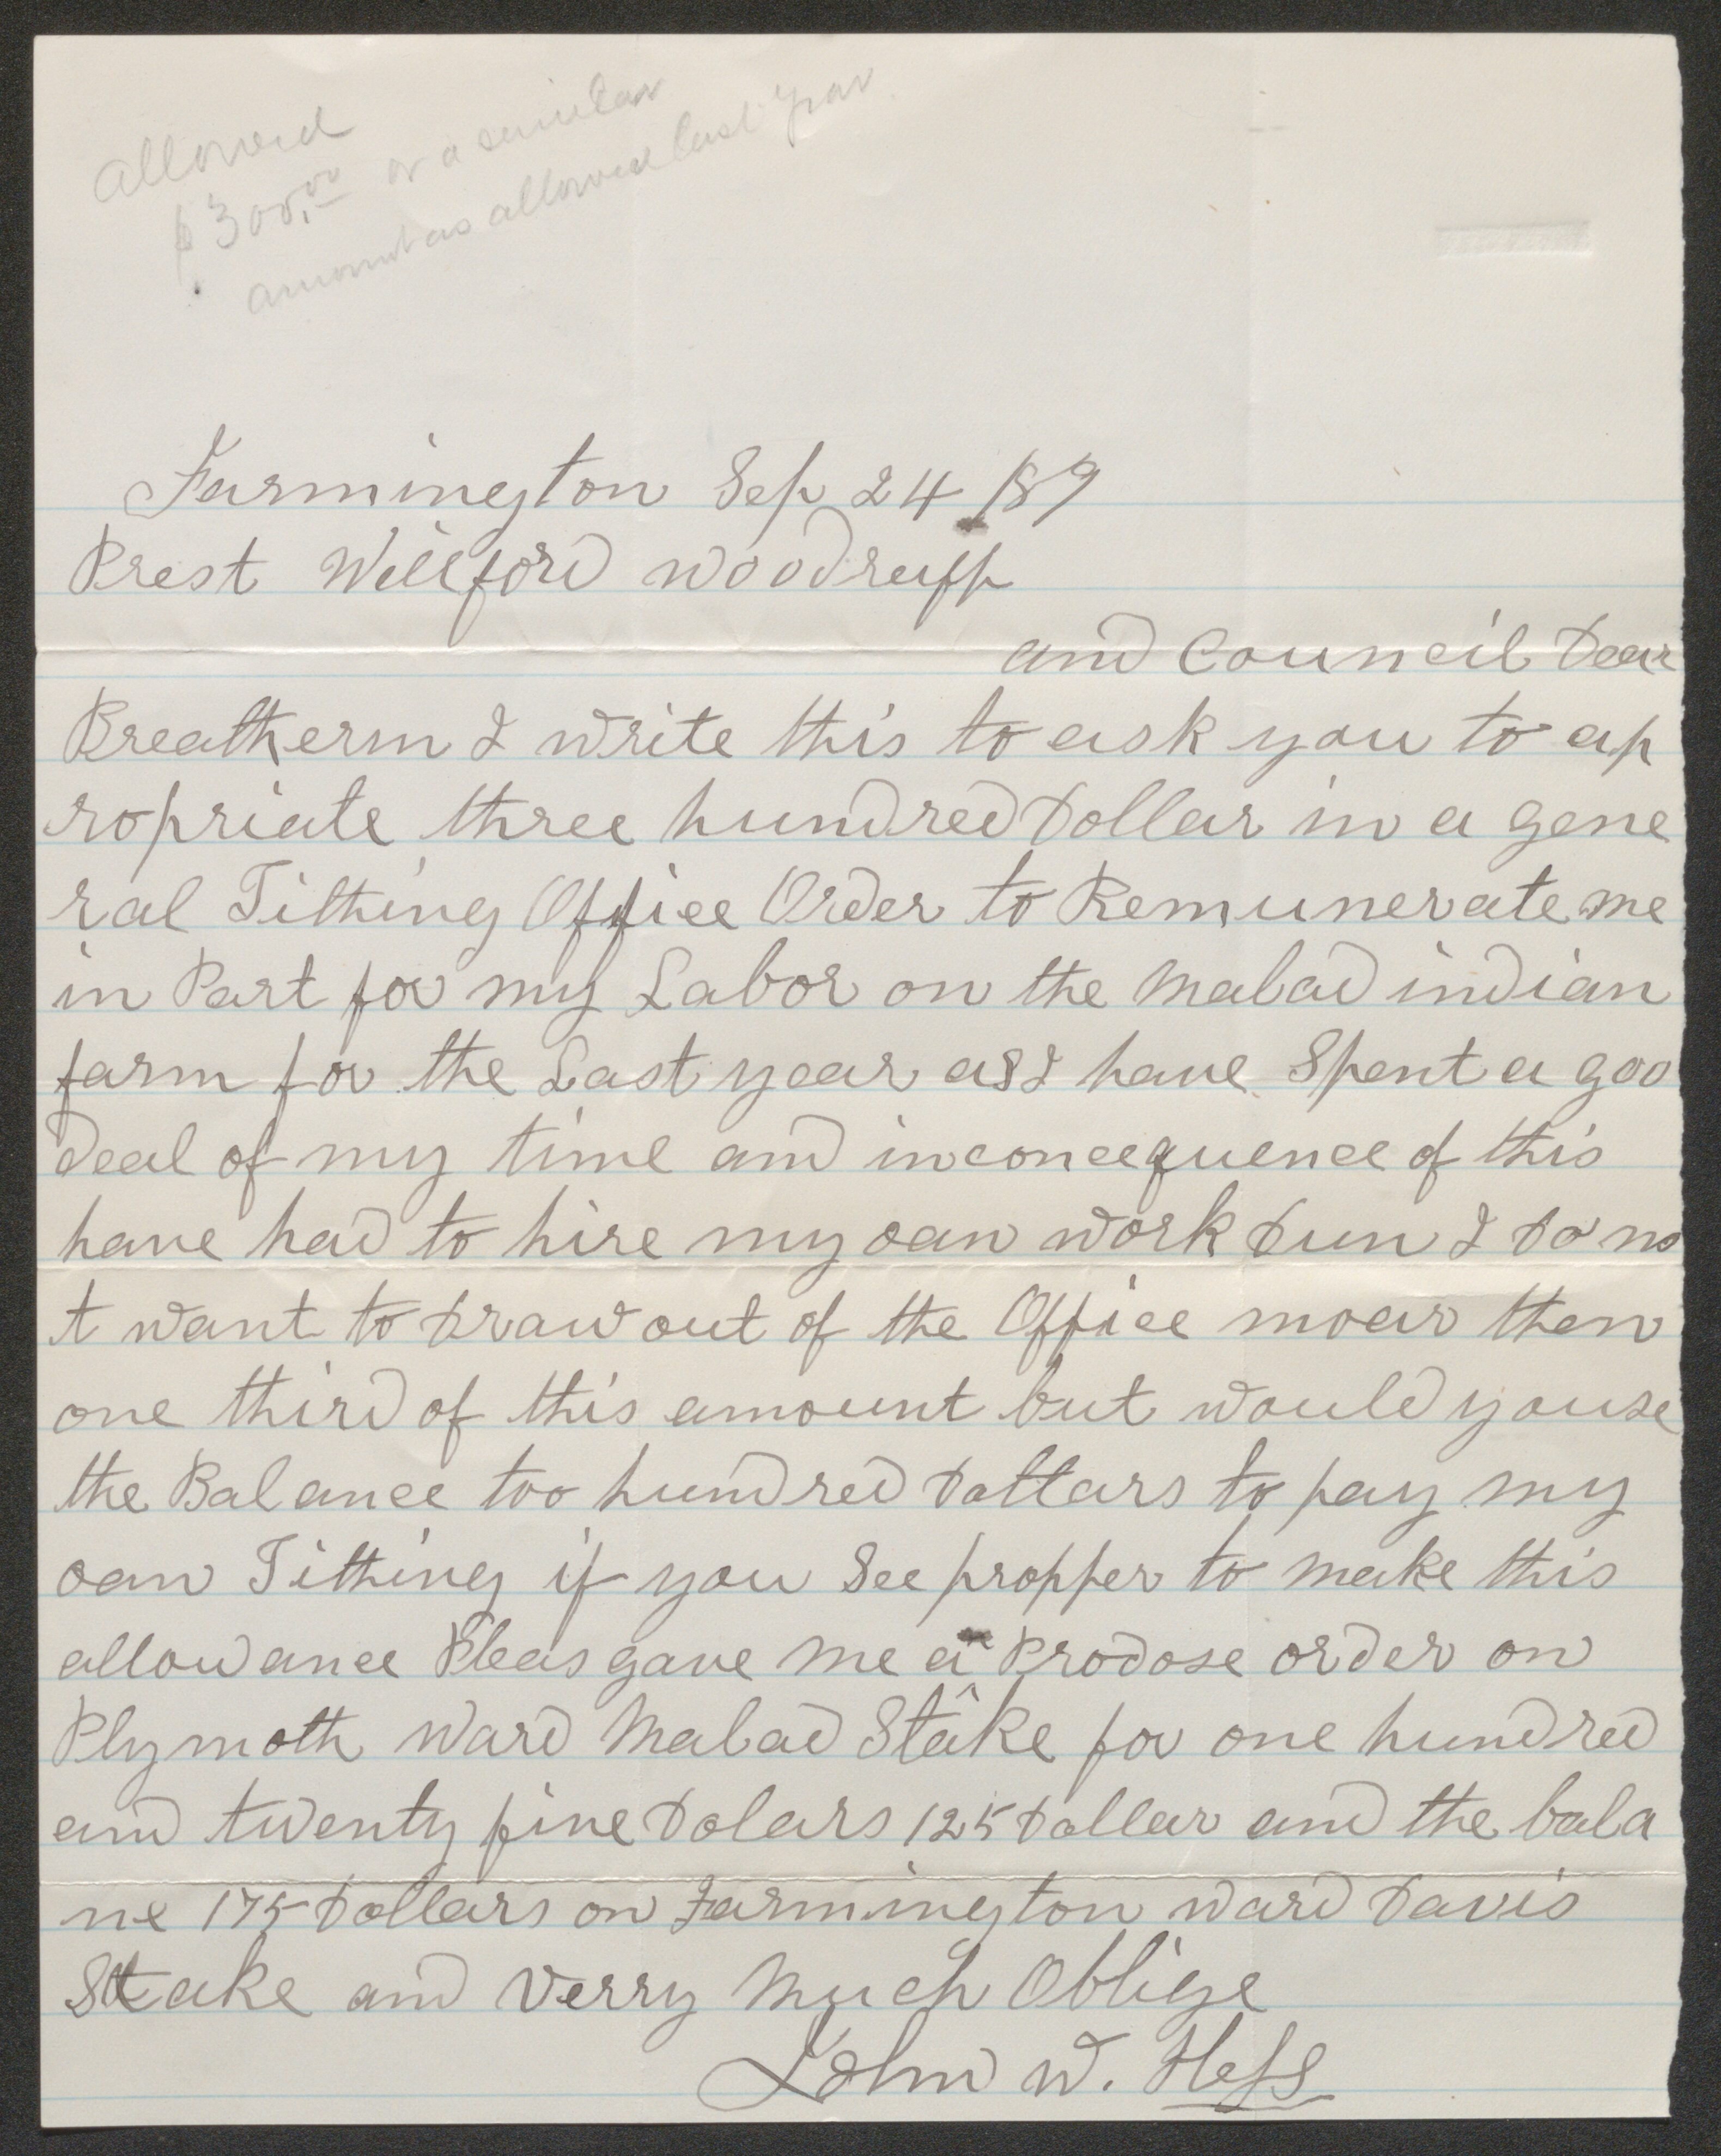 allowed
$300.00 or a similar
amount as allowed last year.
Farmington Sep 24 /89
Prest Willford Woodruff
and Council Dear
Breatherm I write this to ask you to ap
ropriate three hundred Dollar in a gene
ral Tithing Office Order to Remunerate me
in Part for my Labor on the Malad indian
farm for the Last year as I have Spent a goo
deal of my time and inconcequence of this
have had to hire my oan work Dun I Do no
t want to Draw out of the Office moar then
one third of this amount but would youse
the Balance too hundred Dottars to pay my
oan Tithing if you See propper to make this
allowance Pleas gave me a Prodose order on
Plymoth Ward Malad Stake for one hundred
and twenty five Dolars 125 Dollar and the bala
ne 175 Dollars on Farmington Ward Davis
Stake and Verry Much Oblige
John W. Hess